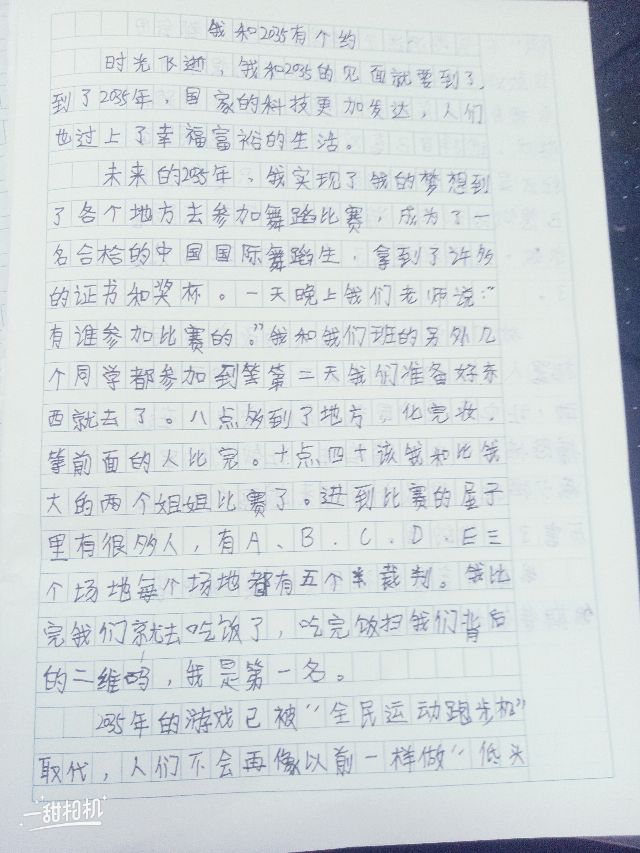 我和2035有个约
时光飞逝，我和2035的见面就要到了，
到了2035年，国家的科技更加发达，人们
也过上了幸福富裕的生活。
未来的2035年，我实现了我的梦想到
了各个地方去参加舞蹈比赛，成为了一
名合格的中国国际舞蹈生，拿到了许多
的证书和奖杯。一天晚上我们老师说："
有谁参加比赛的。"我和我们班的另外几
个同学都参加到等第二天我们准备好东
西就去了。八点多到了地方 化完妆
等前面的人比完。十点四十该我和比我
大的两个姐姐比赛了。进到比赛的屋子
里有很多人，有A、B、C、D、E三
个场地每个场地都有五个裁判。我比
完我们就去吃饭了，吃完饭扫我们背后
的二维码，我是第一名。
2035年的游戏已被"全民运动跑步机"
取代，人们不会再像以前一样做"低头
一甜相机